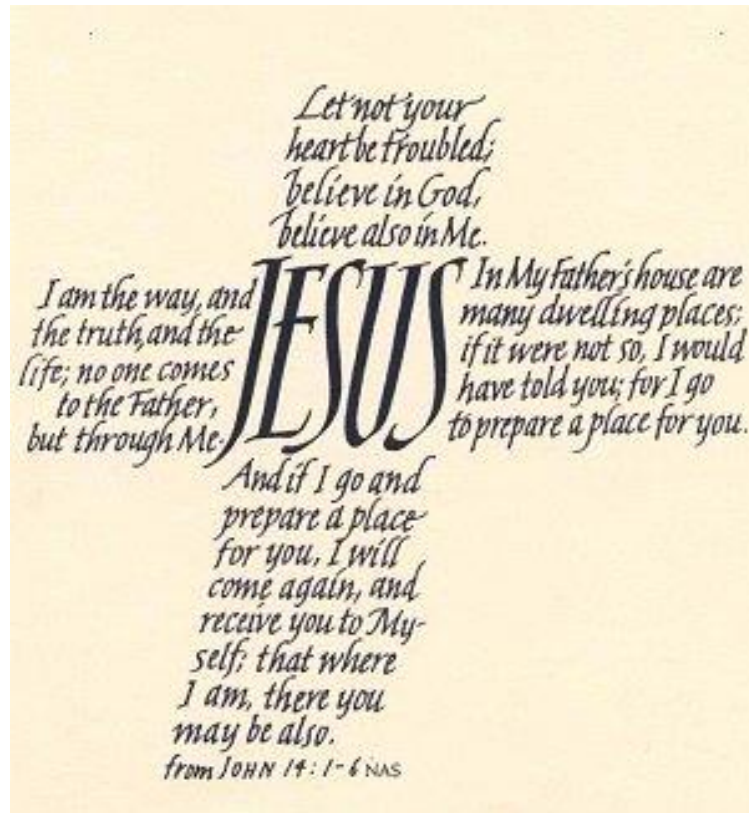 Let not your
heart be troubled;
believe in God,
believe also in Me.
JESUS
I am the way, and
the truth, and the
life; no one comes
to the Father,
but through Me.
In My Father's house are
many dwelling places;
if it were not so, I would
have told you; for I go
to prepare a place for you.
And if I go and
prepare a place
for you, I will
come again, and
receive you to My-
self; that where
I am, there you
may be also.
from JOHN 14:1-6 NAS